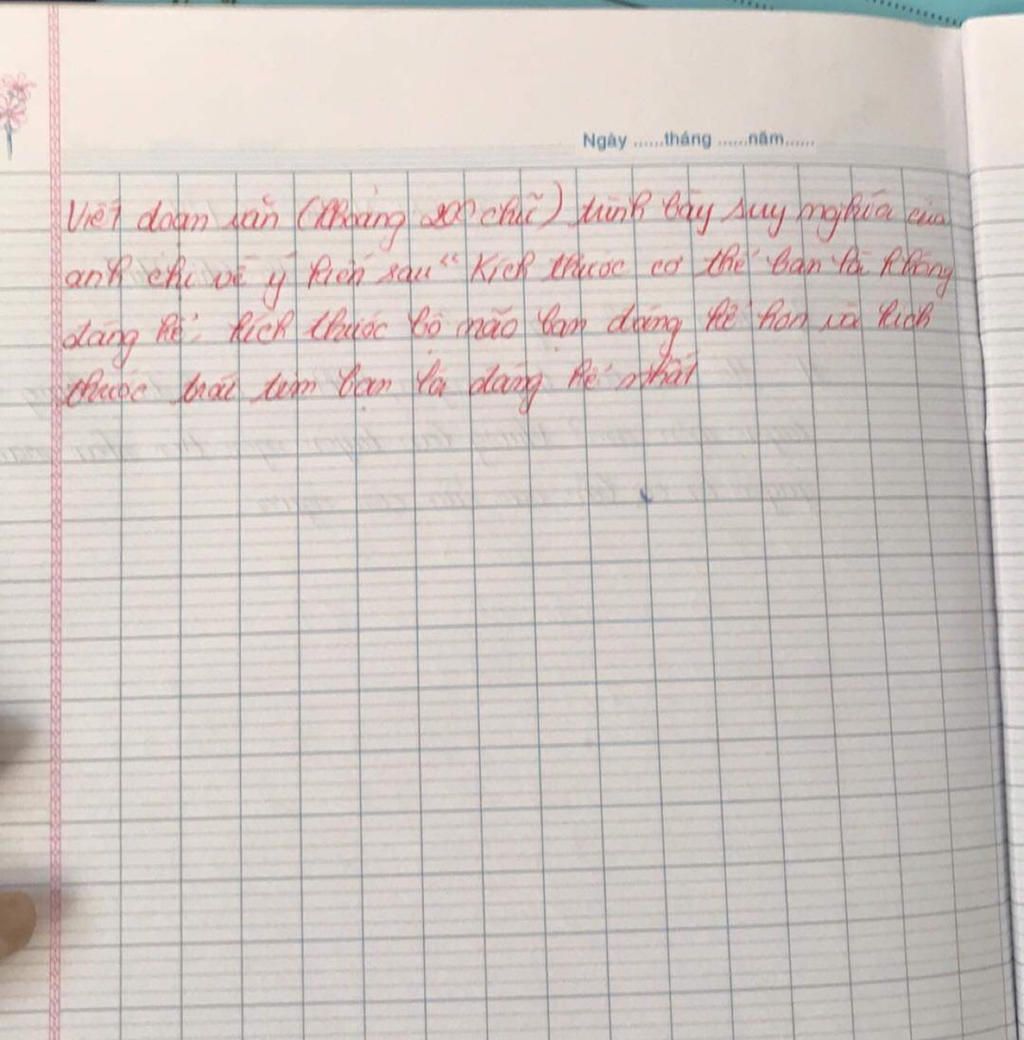 Ngày ......tháng ......năm......
Viết đoạn văn (Khoảng 200 chữ) trình bày suy nghĩa của
anh chị về ý kiến sau " Kích thước cơ thể bạn là không
đáng kể; kích thước bộ não bạn đáng kể hơn và kích
thước trái tim bạn là đáng kể nhất